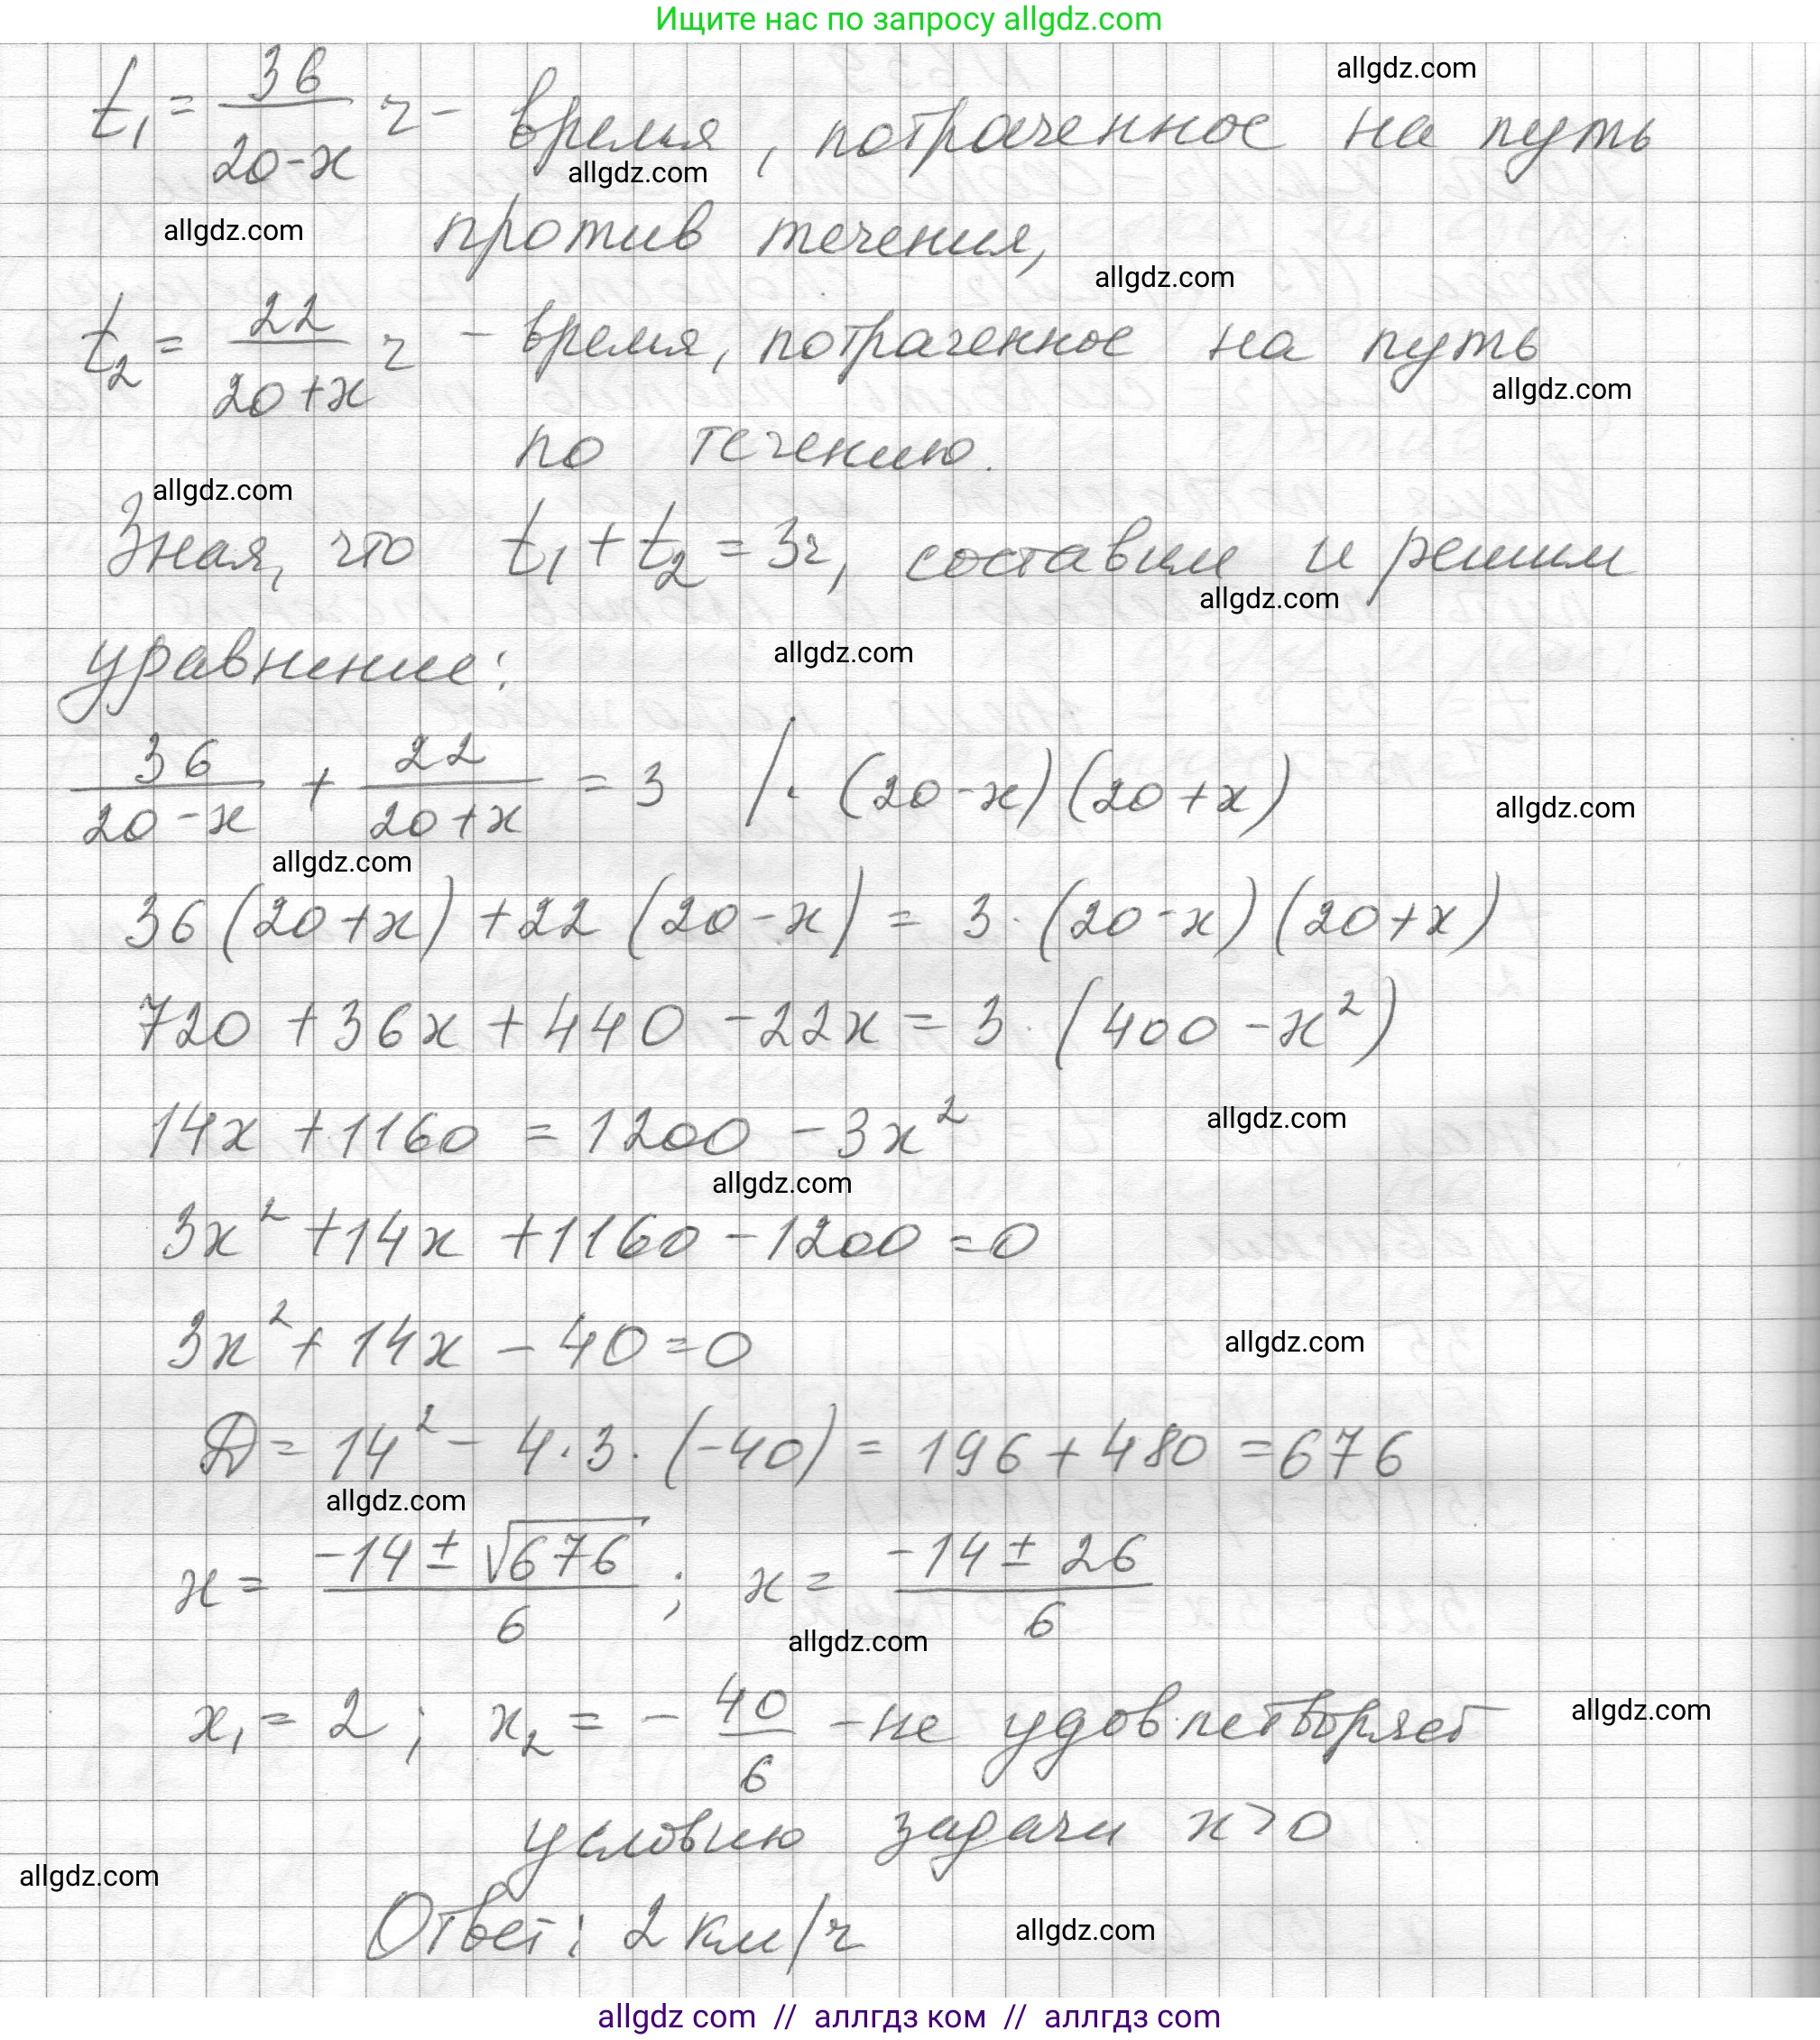 Ищите нас по запросу allgdz.com
allgdz.com
t₁ = 36/(20-x) ч - время, потраченное на путь
allgdz.com
allgdz.com
против течения,
allgdz.com
t₂ = 22/(20+x) ч - время, потраченное на путь
allgdz.com
по течению.
allgdz.com
Зная, что t₁ + t₂ = 3ч, составим и решим
allgdz.com
уравнение:
allgdz.com
36/(20-x) + 22/(20+x) = 3 /· (20-x)(20+x)
allgdz.com
allgdz.com
36(20+x) + 22(20-x) = 3·(20-x)(20+x)
720 + 36x + 440 - 22x = 3·(400 - x²)
14x + 1160 = 1200 - 3x²
allgdz.com
allgdz.com
3x² + 14x + 1160 - 1200 = 0
3x² + 14x - 40 = 0
allgdz.com
D = 14² - 4·3·(-40) = 196 + 480 = 676
allgdz.com
x = (-14 ± √676)/6 ; x = (-14 ± 26)/6
allgdz.com
x₁ = 2 ; x₂ = - 40/6 - не удовлетворяет
allgdz.com
условию задачи x > 0
allgdz.com
Ответ: 2 км/ч
allgdz.com
allgdz com // аллгдз ком // аллгдз com